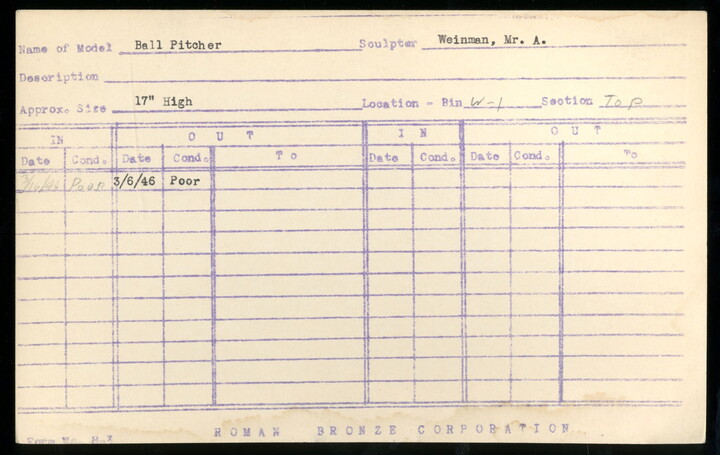 Name of Model Ball Pitcher Sculptor Weinman, Mr. A.
Description
Approx. Size 17" High Location - Bin W-1 Section Top
IN OUT IN OUT
Date Cond. Date Cond. TO Date Cond. Date Cond. To
Poor 3/6/46 Poor
ROMAN BRONZE CORPORATION
Form No.